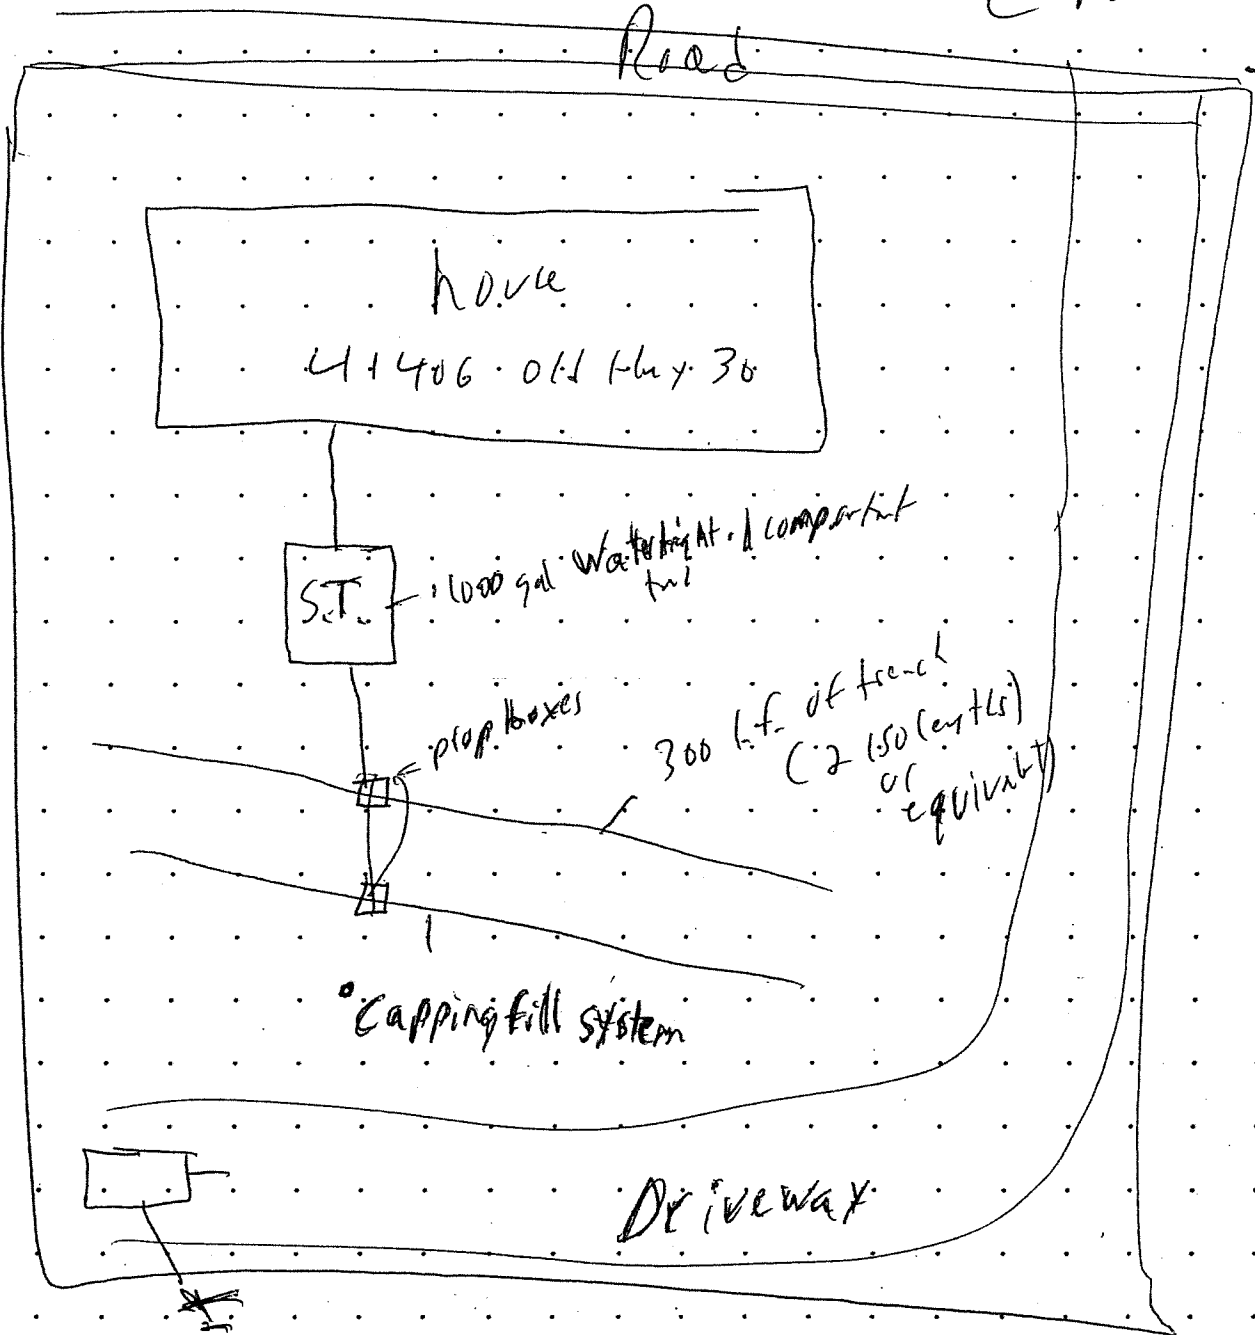 Road
house
41406 Old Hwy 30
S.T.
1000 gal Watertight 1 compartment
drop boxes
300 l.f. of trench
(2 150 lengths)
or
equivalent)
Capping fill system
Driveway